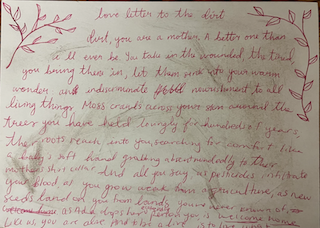 love letter to the dirt
dirt, you are a mother. A better one than
i'll ever be. You take in the wounded, the tired,
you bring them in, let them sink into your warm
wonder and indiscriminate nourishment to all
living things. Moss crawls across your skin around the
trees you have held lovingly for hundreds of years,
the roots reach into you, searching for comfort like
a baby's soft hand grabbing absentmindedly to their
mothers shirt collar. And all you say as pesticides infiltrate
your blood as you grow weak from agriculture, as new
seeds land on you from lands you've never known
as Acid drops person you is welcome home
like us, you are alive And to be alive is to